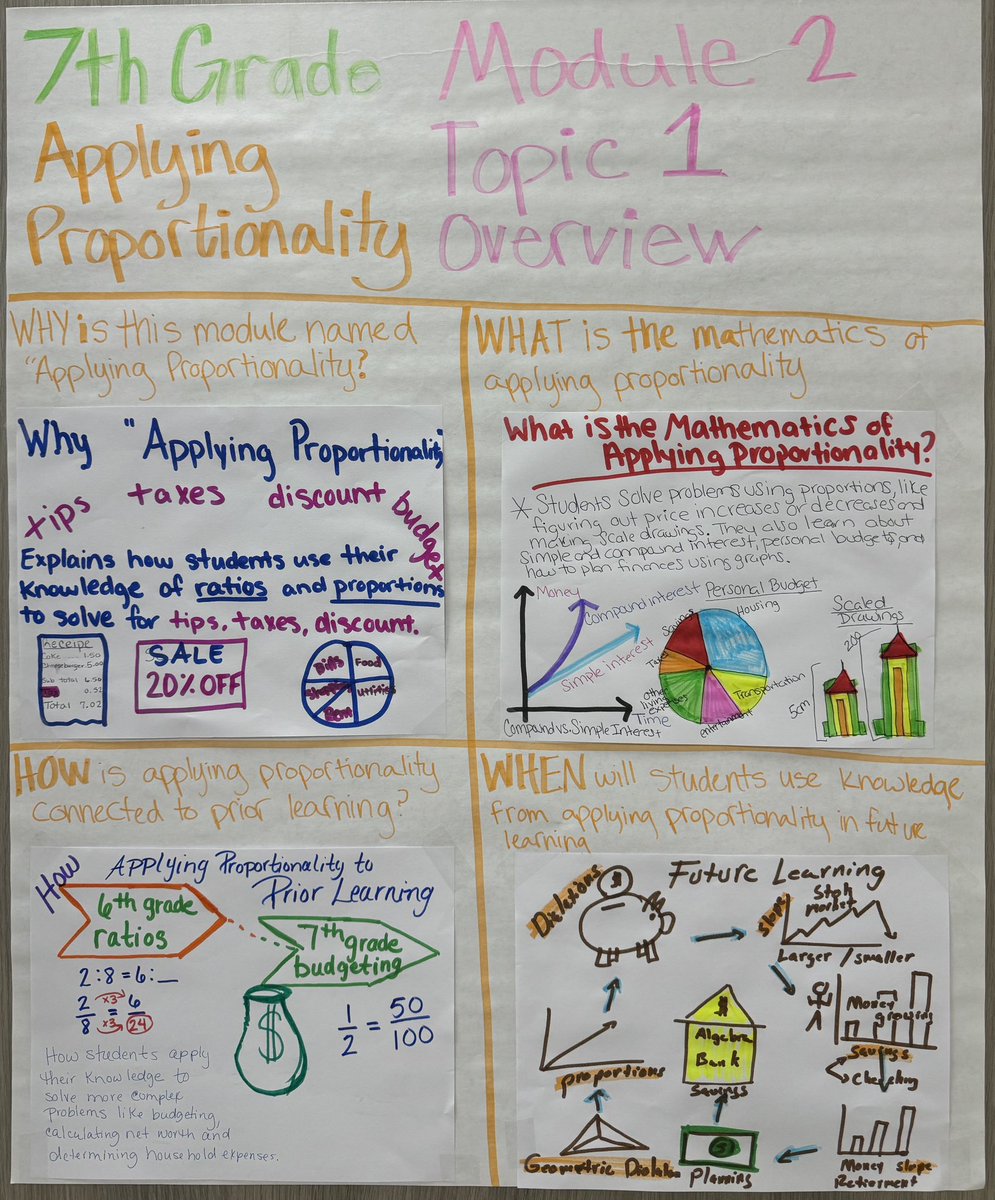 7th Grade Module 2
Applying Topic 1
Proportionality Overview
WHY is this module named
"Applying Proportionality?
Why "Applying Proportionality
tips taxes discount budget
Explains how students use their
knowledge of ratios and proportions
to solve for tips, taxes, discount.
Receipe
Coke 1.50
Cheeseburger 5.00
Sub total 6.50
0.52
Total 7.02
SALE
20% OFF
Bills Food
Utilities
Rent
WHAT is the mathematics of
applying proportionality
What is the Mathematics of
Applying Proportionality?
* Students solve problems using proportions, like
figuring out price increases or decreases and
making scale drawings. They also learn about
simple and compound interest, personal budgets, and
how to plan finances using graphs.
Money
Compound interest
Simple interest
Time
Compound vs. Simple Interest
Personal Budget
Housing
Savings
Taxes
Other living expenses
entertainment
Transportation
Scaled
Drawings
5cm
HOW is applying proportionality
connected to prior learning?
How Applying Proportionality to
Prior Learning
6th grade
ratios
7th grade
budgeting
2:8 = 6:_
2 x3 6
8 x3 24
=
$
1/2 = 50/100
How students apply
their knowledge to
solve more complex
problems like budgeting,
calculating net worth and
determining household expenses.
WHEN will students use knowledge
from applying proportionality in future
learning
Future Learning
Dialations
$
slope
Stoh
market
Larger / smaller
Money
growing
Savings
Checking
Money slope
Retirement
$
Algebra
Bank
Savings
$
Planning
proportions
Geometric Dialation